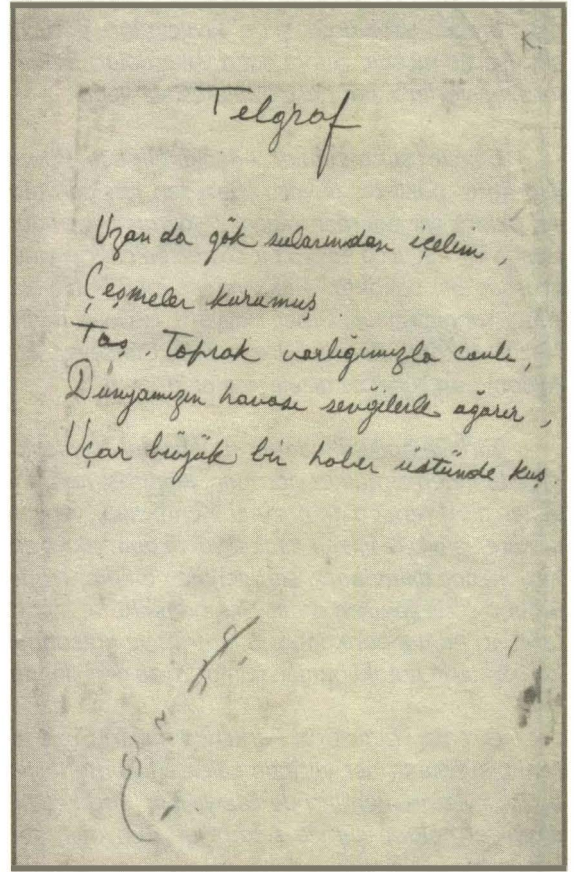 K.
Telgraf
Uzan da gök sularından içelim,
Çeşmeler kurumuş.
Taş, toprak varlığımızla canlı,
Dünyamızın havası sevgilerle ağarır,
Uçar büyük bir haber üstünde kuş.